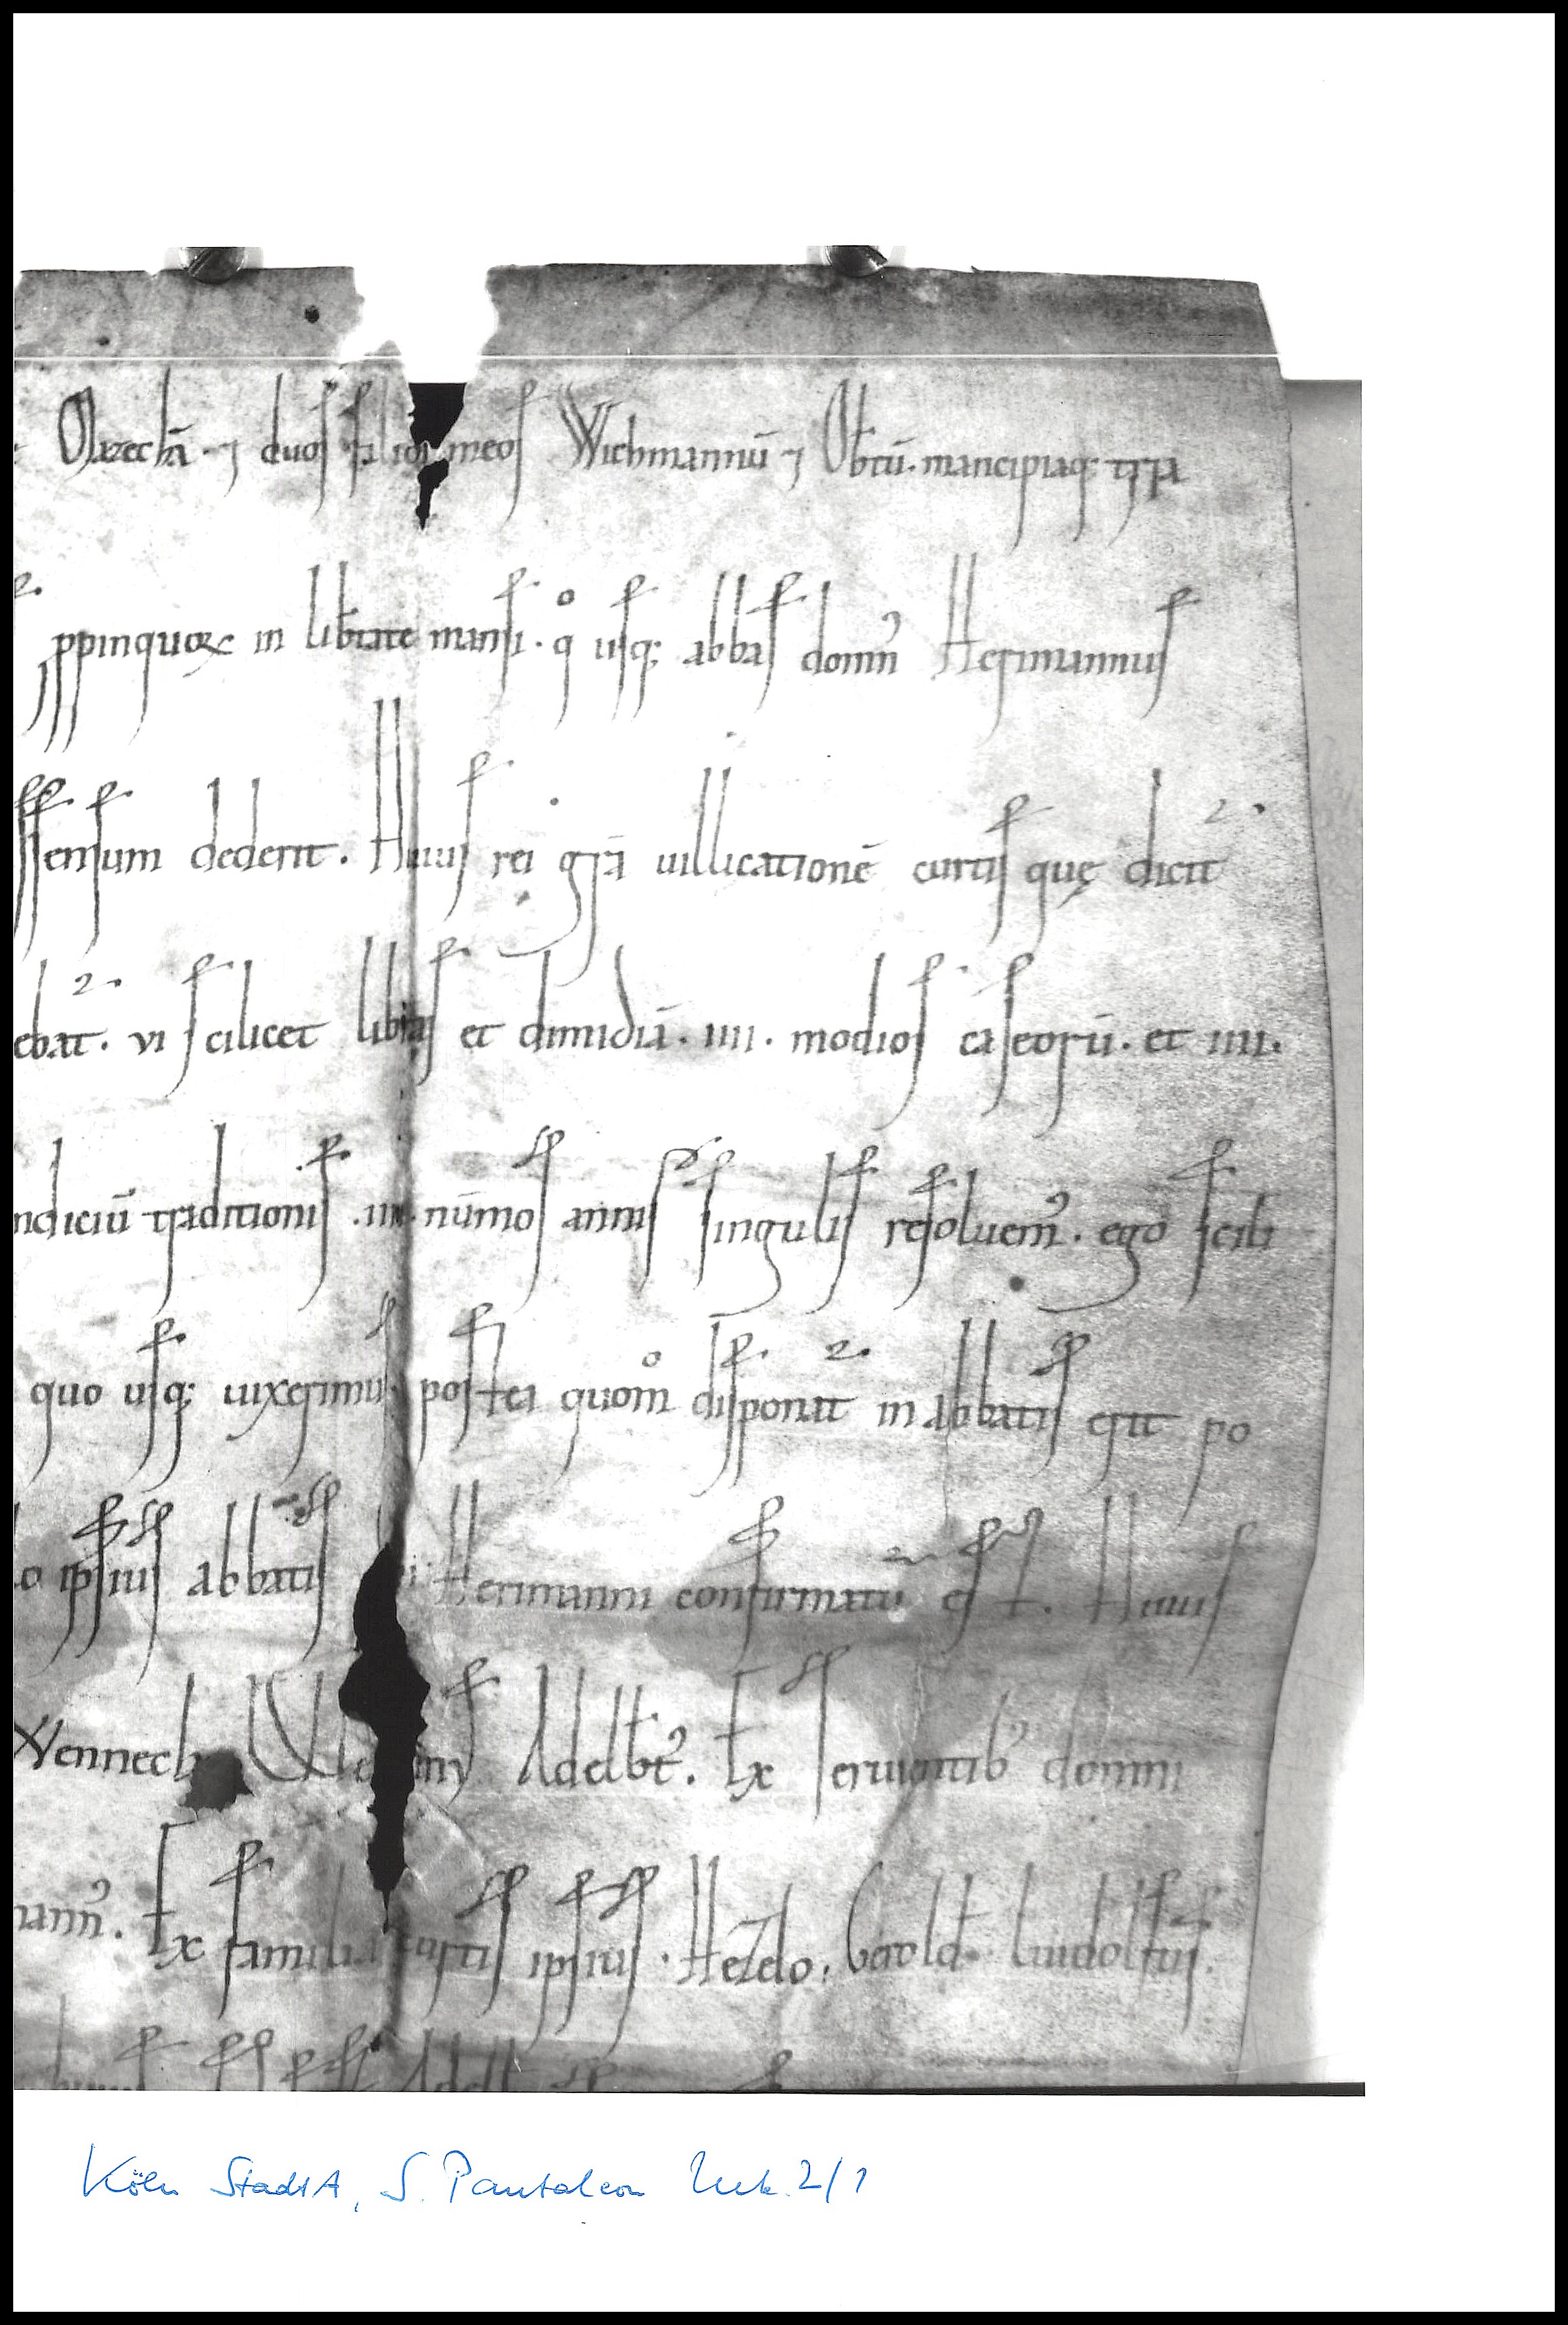 Oazechā · ⁊ duos filios meos Wichmannū ⁊ Obtū · mancipiaq; tria
ppinquoꝝ in libtate mansi · qͦ usq; abbas domn᾿ Herimannus
ssensum dederit . Huius rei gr̄a uillicationē curtis quę dicit᷑
ebat᷑ . vi scilicet libras et dimidiā . iiii . modios caseorū . et iiii .
ndiciū traditionis . iiii . nūmos annis singulis resoluem᾿ . ego scili
quo usq; uixerimus . postea quom̊ disponat᷑ in abbatis erit po
o ipsius abbatis Herimanni confirmatū est . Huius
Wennech Adelbt᾿ . Ex seruientib᾿ domni
mann᾿ . Ex familia curtis ipsius . Hezelo . Gerold . Liudolfus .
Köln StadtA, S. Pantaleon Urk. 2/1